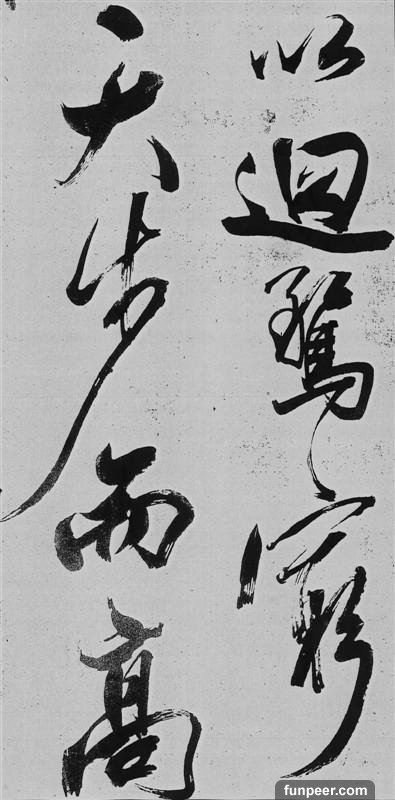 以迴騖窮
天步而高
funpeer.com